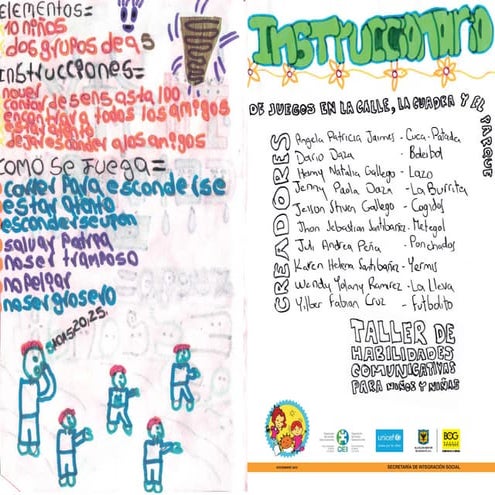 ELEMENTOS=
10 niños
dos grupos de a 5
INSTRUCCIONES=
no ver
contar de 5 en 5 asta 100
encontrar a todos los amigos
estar atento
dejar esconder a los amigos
COMO SE JUEGA=
correr para esconderse
estar atento
esconderse bien
salvar patria
no ser tramposo
no pelear
no ser grosero
5.10.15.20.25.
INSTRUCCIONARIO
DE JUEGOS EN LA CALLE, LA CUADRA Y EL PARQUE
CREADORES
Angela Patricia Jaimes - Cuca-Patada
Dario Daza - Bobobol
Hamy Natalia Gallego - Lazo
Jenny Paola Daza - La Burrita
Jeison Stiven Gallego - Cogidos
Jhon Sebastian Santibañez - Metegol
Juli Andrea Peña - Ponchados
Karen Helena Santibañez - Yermis
Wendy Yolany Ramirez - La Lleva
Yilber Fabian Cruz - Futbolito
TALLER DE
HABILIDADES
COMUNICATIVAS
PARA NIÑOS Y NIÑAS
OEI
unicef
BOG
SECRETARÍA DE INTEGRACIÓN SOCIAL